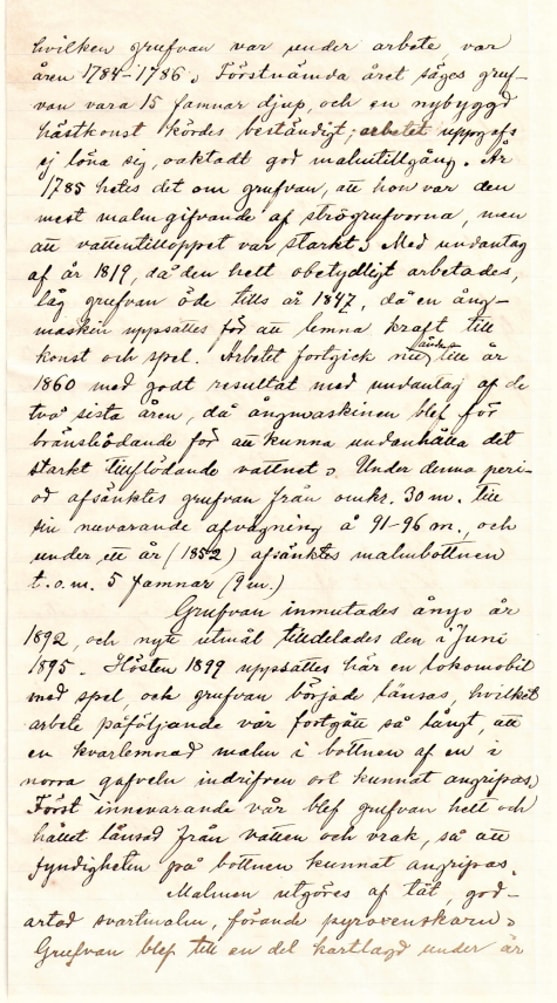 hvilken grufvan var under arbete, var
åren 1784-1786. Förstnämda året säges gruf-
van vara 15 famnar djup, och en nybyggd
hästkonst kördes beständigt; arbetet uppgafs
ej löna sig, oaktadt god malmtillgång. År
1785 hetes det om grufvan, att hon var den
mest malmgifvande af strögrufvorna, men
att vattentilloppet var starkt. Med undantag
af år 1819, då den helt obetydligt arbetades,
låg grufvan öde tills år 1847, då en ång-
maskin uppsattes för att lemna kraft till
konst och spel. Arbetet fortgick till år
1860 med godt resultat med undantag af de
två sista åren, då ångmaskinen blef för
bränslödande för att kunna undanhålla det
starkt tillflödande vattnet. Under denna peri-
od afsänktes grufvan från omkr. 30 m. till
sin nuvarande afvägning å 91-96 m., och
under ett år (1852) afsänktes malmbottnen
t.o.m. 5 famnar (9 m.)
Grufvan inmutades ånyo år
1892, och nytt utmål tilldelades den i Juni
1895. Hösten 1899 uppsattes här en lokomobil
med spel, och grufvan började länsas, hvilket
arbete påföljande vår fortgått så långt, att
en kvarlemnad malm i bottnen af en i
norra gafveln indrifven ort kunnat angripas.
Först innevarande vår blef grufvan helt och
hållet länsad från vatten och vrak, så att
fyndigheten på bottnen kunnat angripas.
Malmen utgöres af tät, god-
artad svartmalm, förande pyroxenskarn.
Grufvan blef till en del kartlagd under år